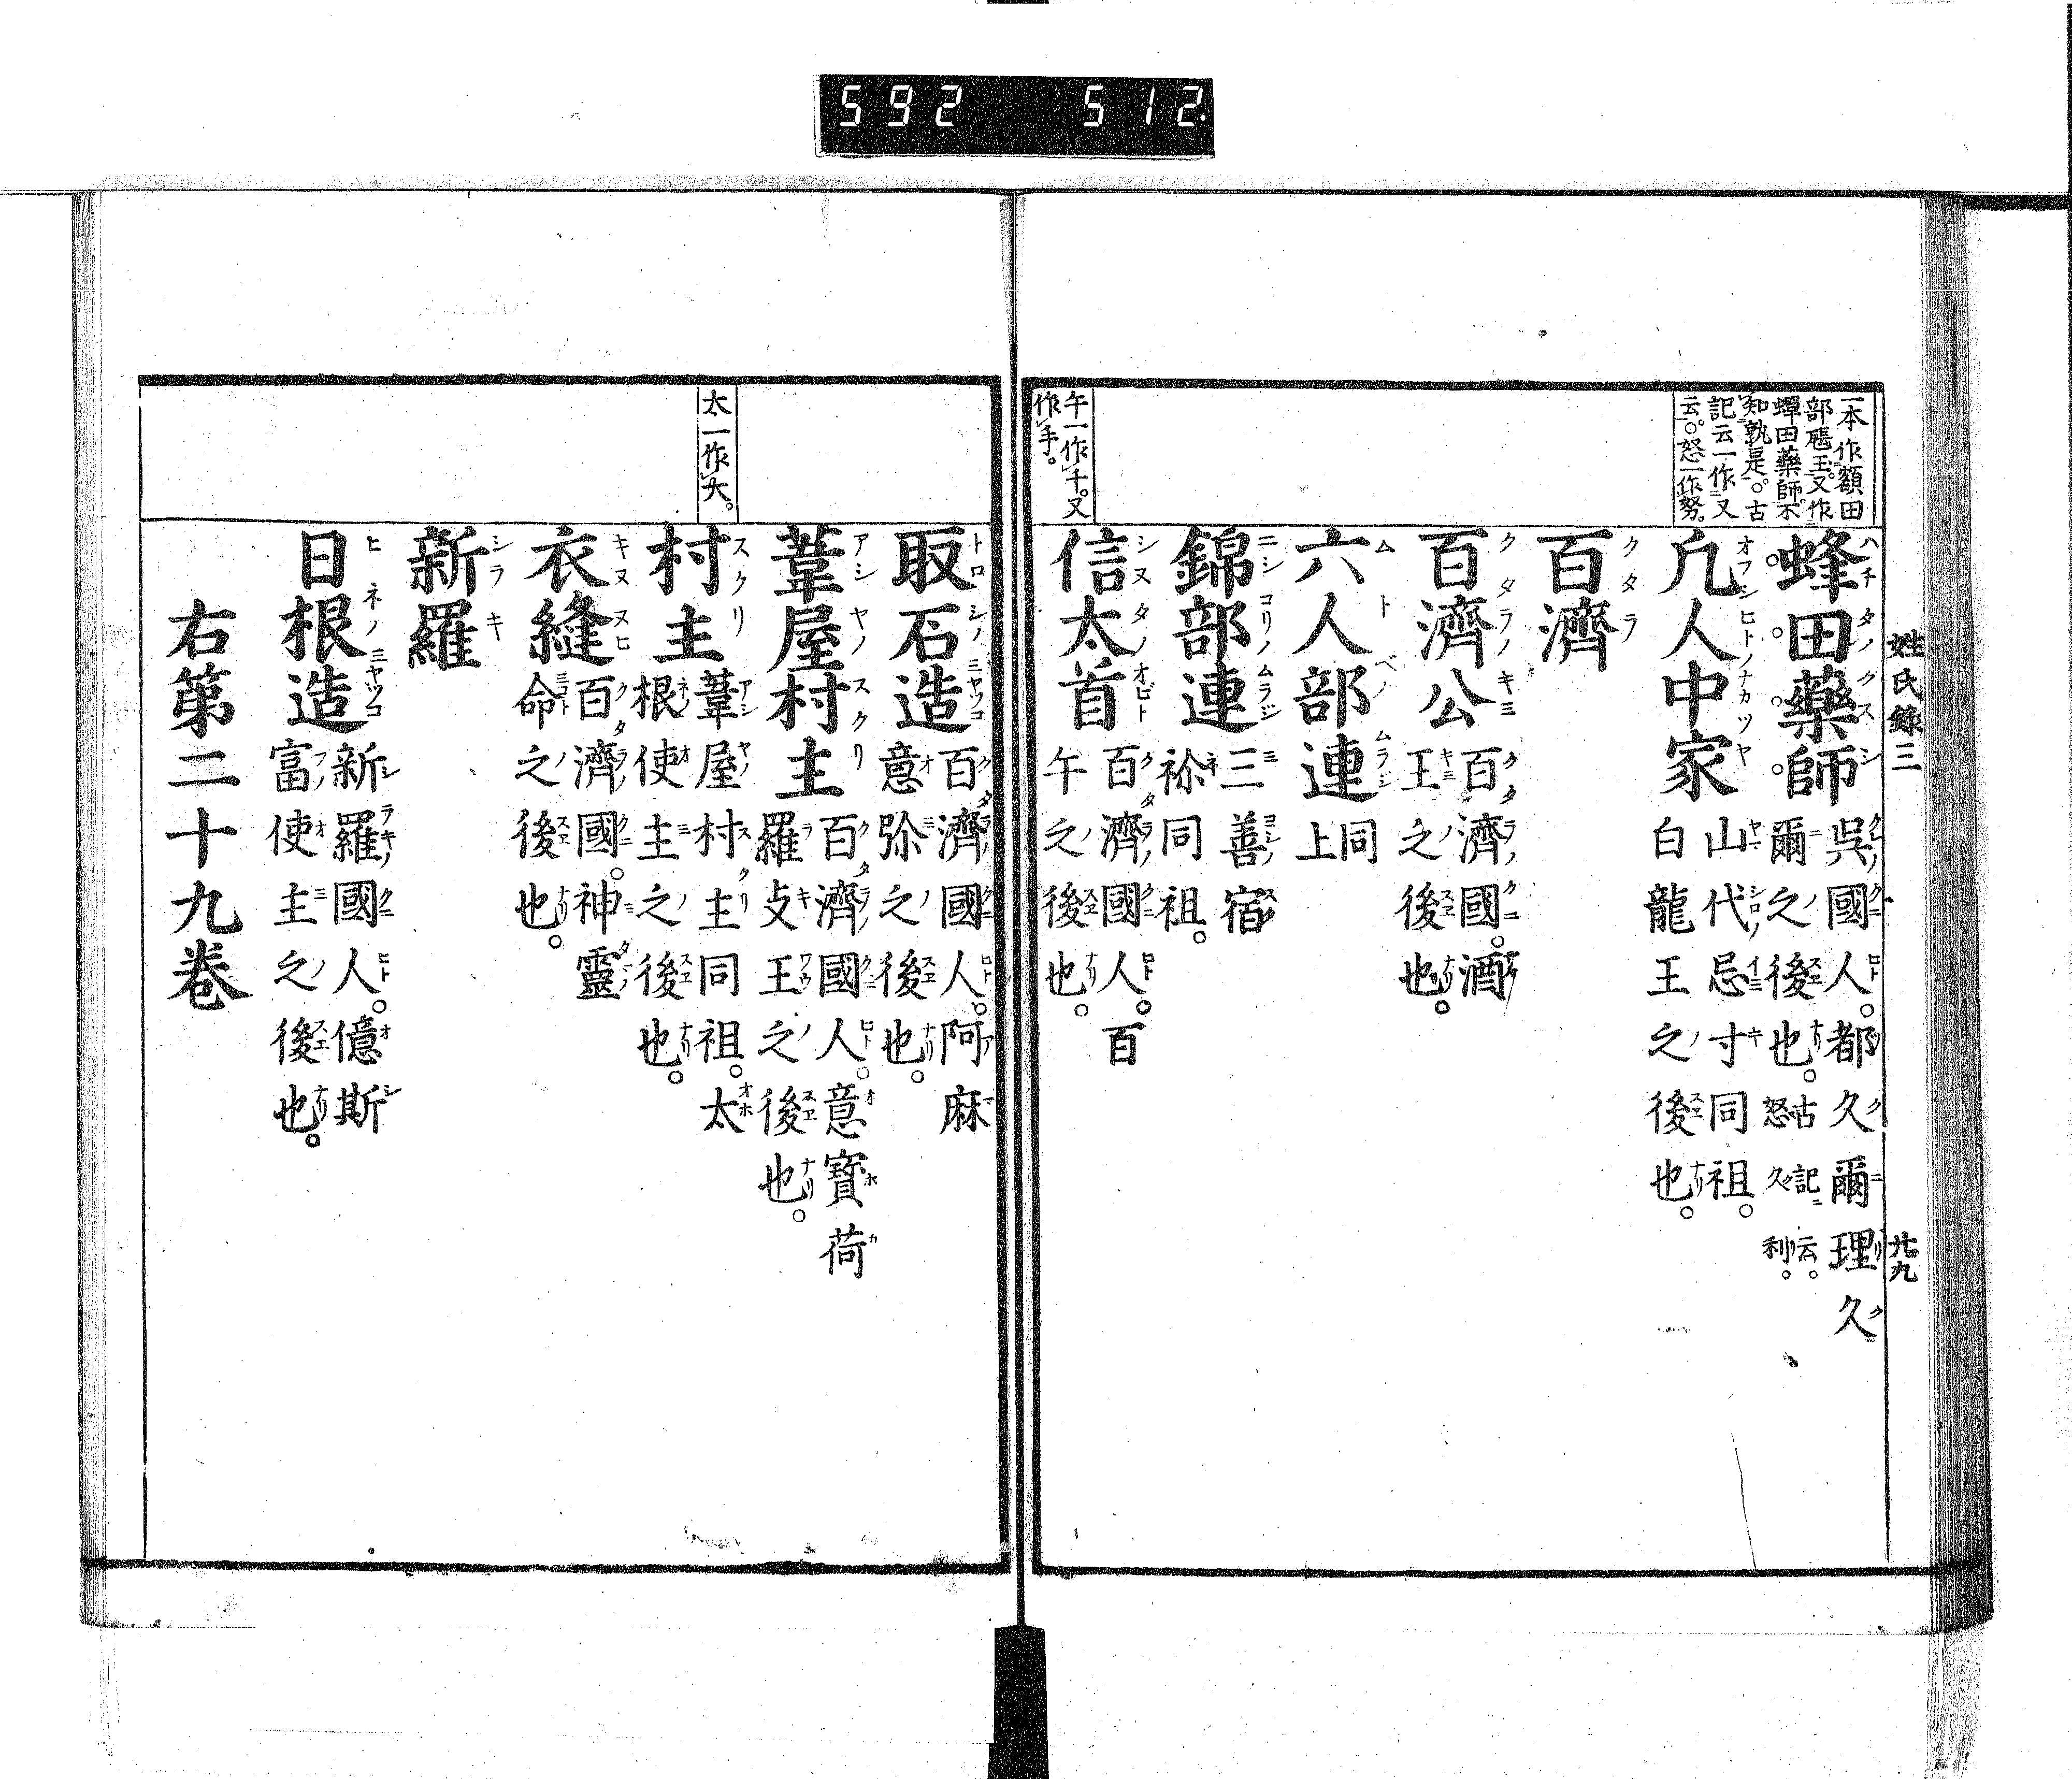 592 512
姓氏錄三
廿九
一本作額田
部膳王又作
蟬田藥師不
知孰是○古
記云一作又
云○怒一作努
蜂田藥師 吳國人都久爾理久
爾之後也 古記云
怒久利
凢人中家 山代忌寸同祖
白龍王之後也
百濟
百濟公 百濟國酒
王之後也
六人部連 同
上
錦部連 三善宿
祢同祖
午一作千又
作手
信太首 百濟國人百
午之後也
取石造 百濟國人阿麻
意弥之後也
葦屋村主 百濟國人意寶荷
羅攴王之後也
太一作大
村主 葦屋村主同祖太
根使主之後也
衣縫 百濟國神靈
命之後也
新羅
日根造 新羅國人億斯
富使主之後也
右第二十九卷